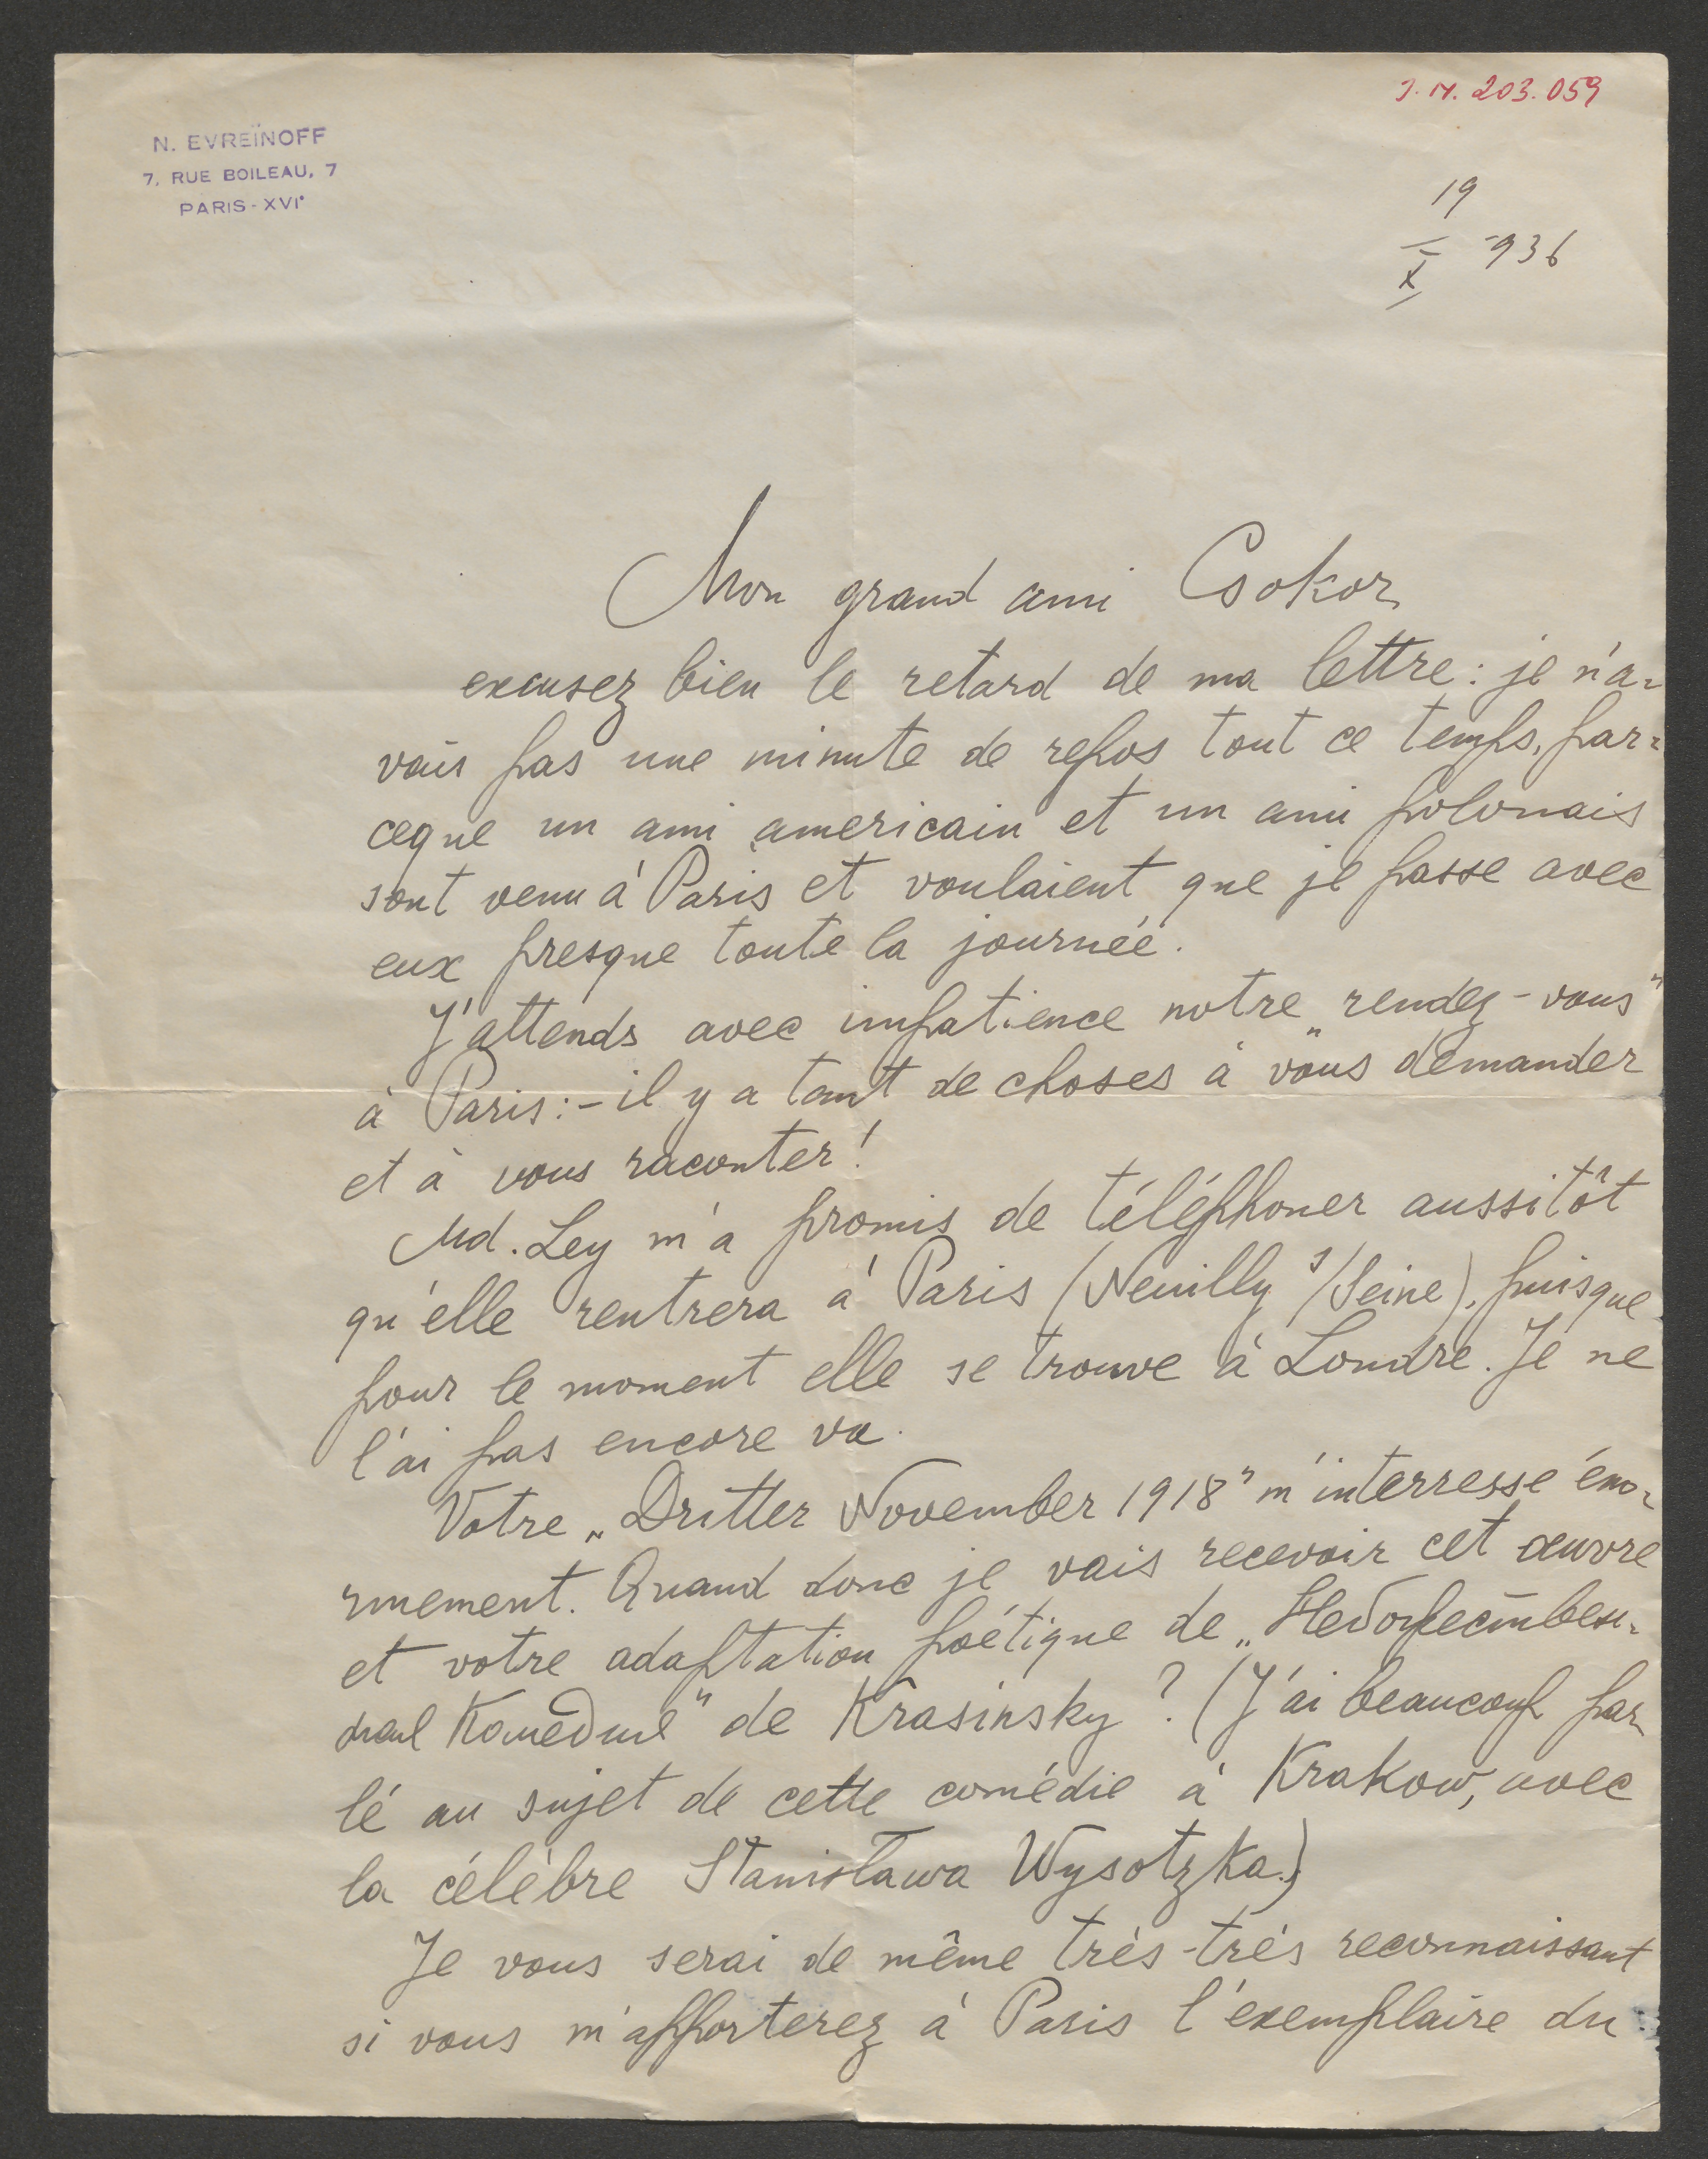 J.N. 203.059
N. EVREÏNOFF
7, RUE BOILEAU, 7
PARIS - XVIᵉ
19
X -936
Mon grand ami Csokor,
excusez bien le retard de ma lettre: je n'a-
vais pas une minute de repos tout ce temps, par-
ceque un ami americain et un ami polonais
sont venu à Paris et voulaient que je passe avec
eux presque toute la journée.
J'attends avec impatience notre „rendez-vous"
à Paris: - il y a tant de choses à vous demander
et à vous raconter!
Md. Ley m'a promis de téléphoner aussitôt
qu'elle rentrera à Paris (Neuilly s/Seine), puisque
pour le moment elle se trouve à Londre. Je ne
l'ai pas encore vu.
Votre „Dritter November 1918" m'interresse éno-
rmement. Quand donc je vais recevoir cet œuvre
et votre adaptation poétique de „Небожествен-
ная Комедия" de Krasinsky? (J'ai beaucoup par
lé au sujet de cette comédie à Krakow, avec
la célèbre Stanisława Wysotzka.)
Je vous serai de même très-très reconnaissant
si vous m'apporterez à Paris l'exemplaire du